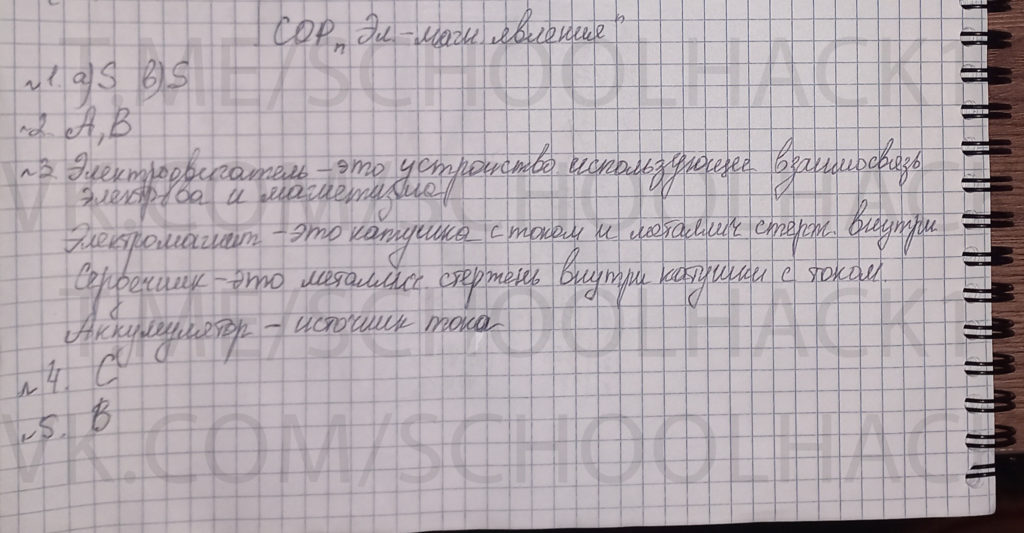 СОР „Эл.-магн. явления"
T.ME/SCHOOLHACK1
№1. а) S в) S
№2. А, В
VK.COM/SCHOOLHACK
№3 Электродвигатель – это устройство использующее взаимосвязь
электр-ва и магнетизма
Электромагнит – это катушка с током и металлич стерж. внутри
Сердечник – это металлич. стержень внутри катушки с током.
T.ME/SCHOOLHACK1
Аккумулятор – источник тока
№4. С
№5. В
VK.COM/SCHOOLHACK